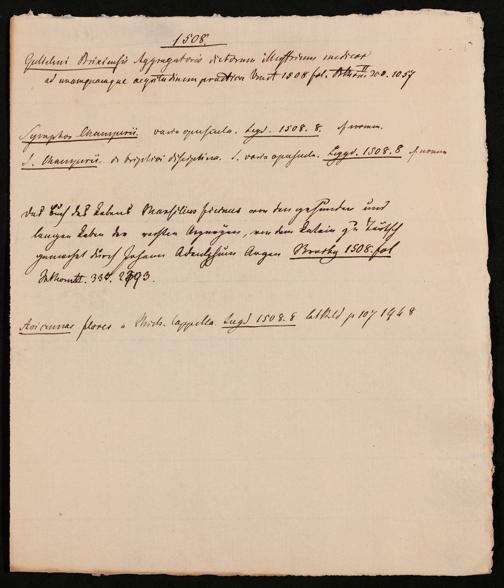 1508.
Gulielmi Brixiensis Aggregatoris dictorum illustrium medicor
ad unamquamque aegritudinem practica Venet 1508 fol. II 1057
Symphor Champerii. varia opuscula. Lugd. 1508. 8.
S. Champerii. de triplici disciplina. S. varia opuscula. Lugd. 1508. 8
Das Buch des Lebens Marsilius ficinus von den gesunden und
langen Leben der rechten Artzneyen, von dem Latein zu Teutsch
gemachet durch Johann Adelphum Argen Strasbg 1508. fol
334. 2393.
Avicennae flores a Mich. Capella. Lugd 1508. 8 p 107 1948